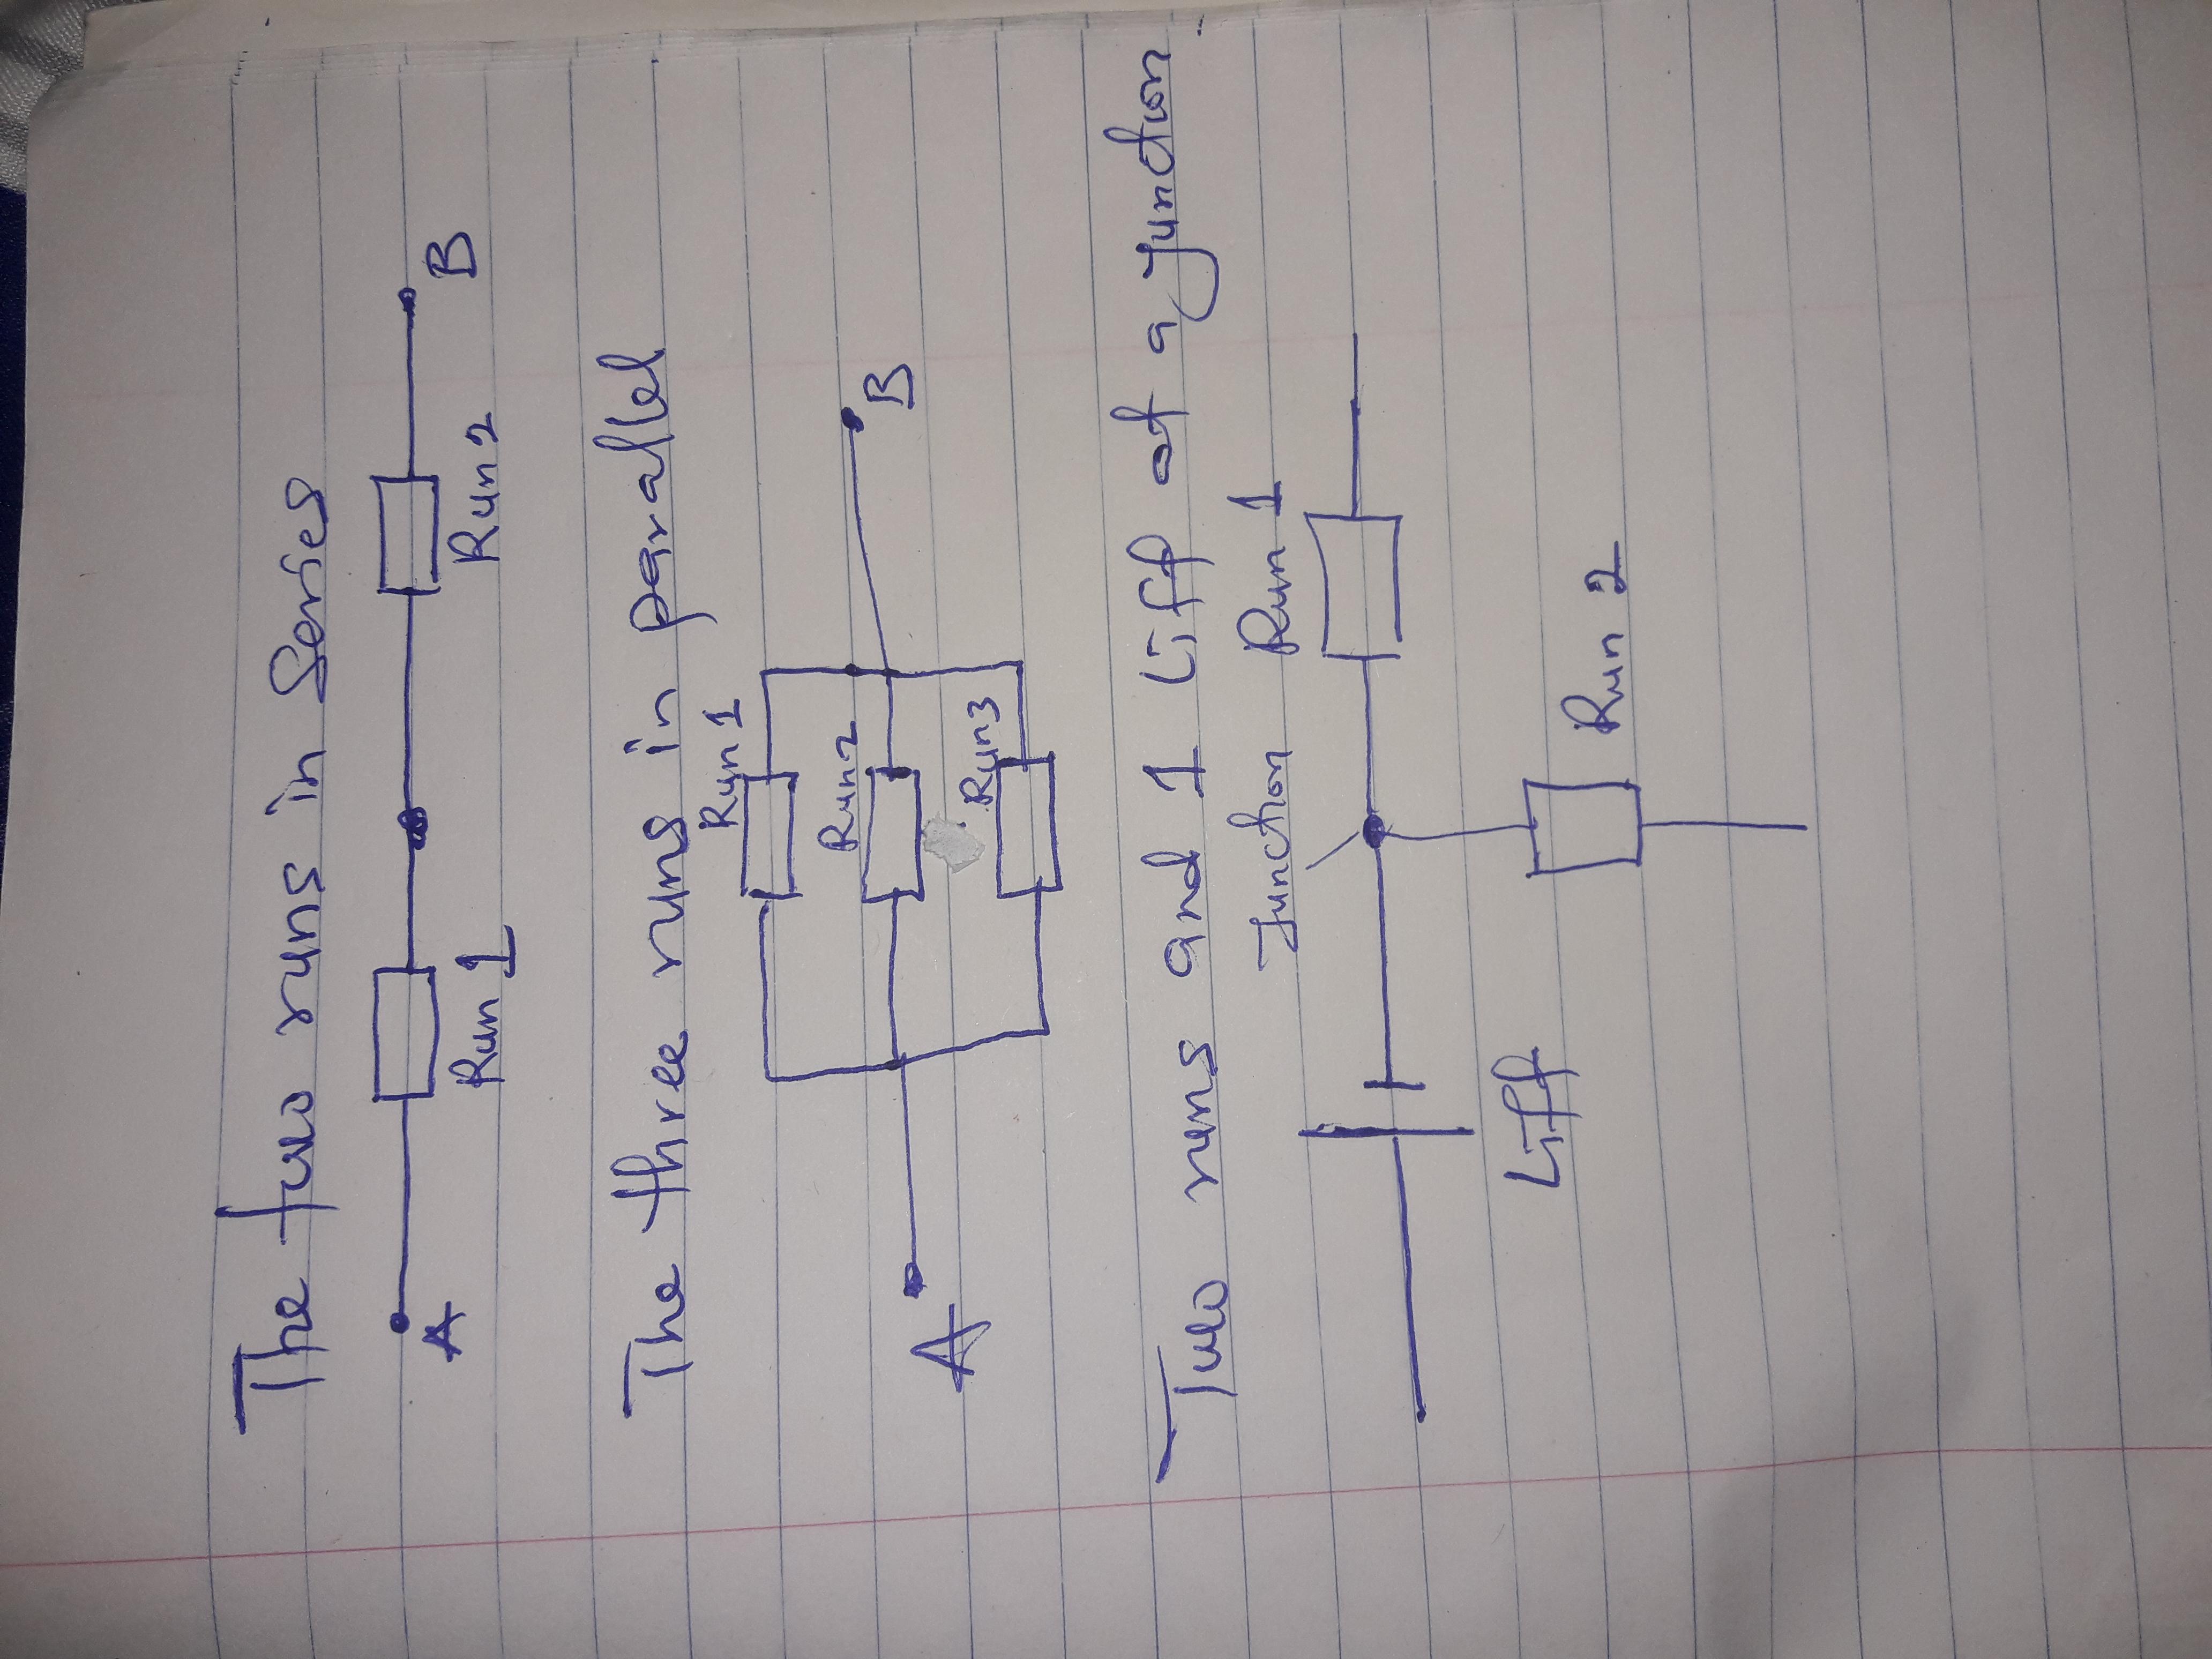 The two runs in Series
A
Run 1
Run 2
B
The three runs in parallel
Run 1
Run 2
Run3
A
B
Two runs and 1 Liff at a Junction
Junction
Run 1
Liff
Run 2